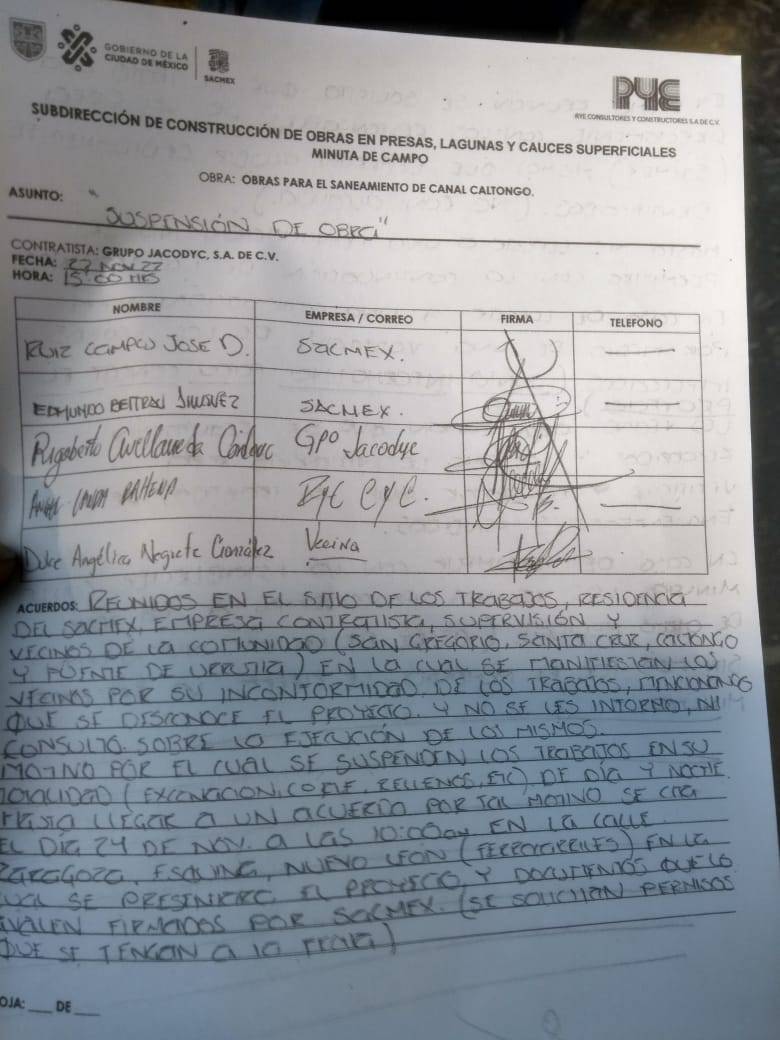 GOBIERNO DE LA
CIUDAD DE MÉXICO
SACMEX
PYE
RYE CONSULTORES Y CONSTRUCTORES S.A DE C.V.
SUBDIRECCIÓN DE CONSTRUCCIÓN DE OBRAS EN PRESAS, LAGUNAS Y CAUCES SUPERFICIALES
MINUTA DE CAMPO
OBRA: OBRAS PARA EL SANEAMIENTO DE CANAL CALTONGO.
ASUNTO:
"SUSPENSIÓN DE OBRA"
CONTRATISTA: GRUPO JACODYC, S.A. DE C.V.
FECHA: 22 NOV 22
HORA: 15:00 HRS
NOMBRE EMPRESA / CORREO FIRMA TELEFONO
RUIZ CAMPOS JOSE D. SACMEX.
EDMUNDO BELTRAN JIMENEZ SACMEX.
Rigoberto Avellaneda GPO Jacodyc
LANDA BAHENA RYE CYC.
Dulce Angélica Negrete González Vecina
ACUERDOS: REUNIDOS EN EL SITIO DE LOS TRABAJOS, RESIDENCIA
DEL SACMEX, EMPRESA CONTRATISTA, SUPERVISIÓN Y
VECINOS DE LA COMUNIDAD (SAN GREGORIO, SANTA CRUZ, CALTONGO
Y PUENTE DE URRUTIA) EN LA CUAL SE MANIFIESTAN LOS
VECINOS POR SU INCONFORMIDAD DE LOS TRABAJOS, MENCIONANDO
QUE SE DESCONOCE EL PROYECTO. Y NO SE LES INFORMO, NI
CONSULTO. SOBRE LA EJECUCIÓN DE LOS MISMOS.
MOTIVO POR EL CUAL SE SUSPENDEN LOS TRABAJOS EN SU
TOTALIDAD (EXCAVACION, CORTE, RELLENOS, ETC) DE DIA Y NOCHE.
HASTA LLEGAR A UN ACUERDO POR TAL MOTIVO SE CITA
EL DIA 24 DE NOV. A LAS 10:00am EN LA CALLE
ZARAGOZA, ESQUINA, NUEVO LEÓN (FERROCARRILES) EN LA
CUAL SE PRESENTARA EL PROYECTO, Y DOCUMENTOS QUE LO
AVALEN FIRMADOS POR SACMEX. (SE SOLICITAN PERMISOS
QUE SE TENGAN A LA FECHA)
OJA: ____ DE ____